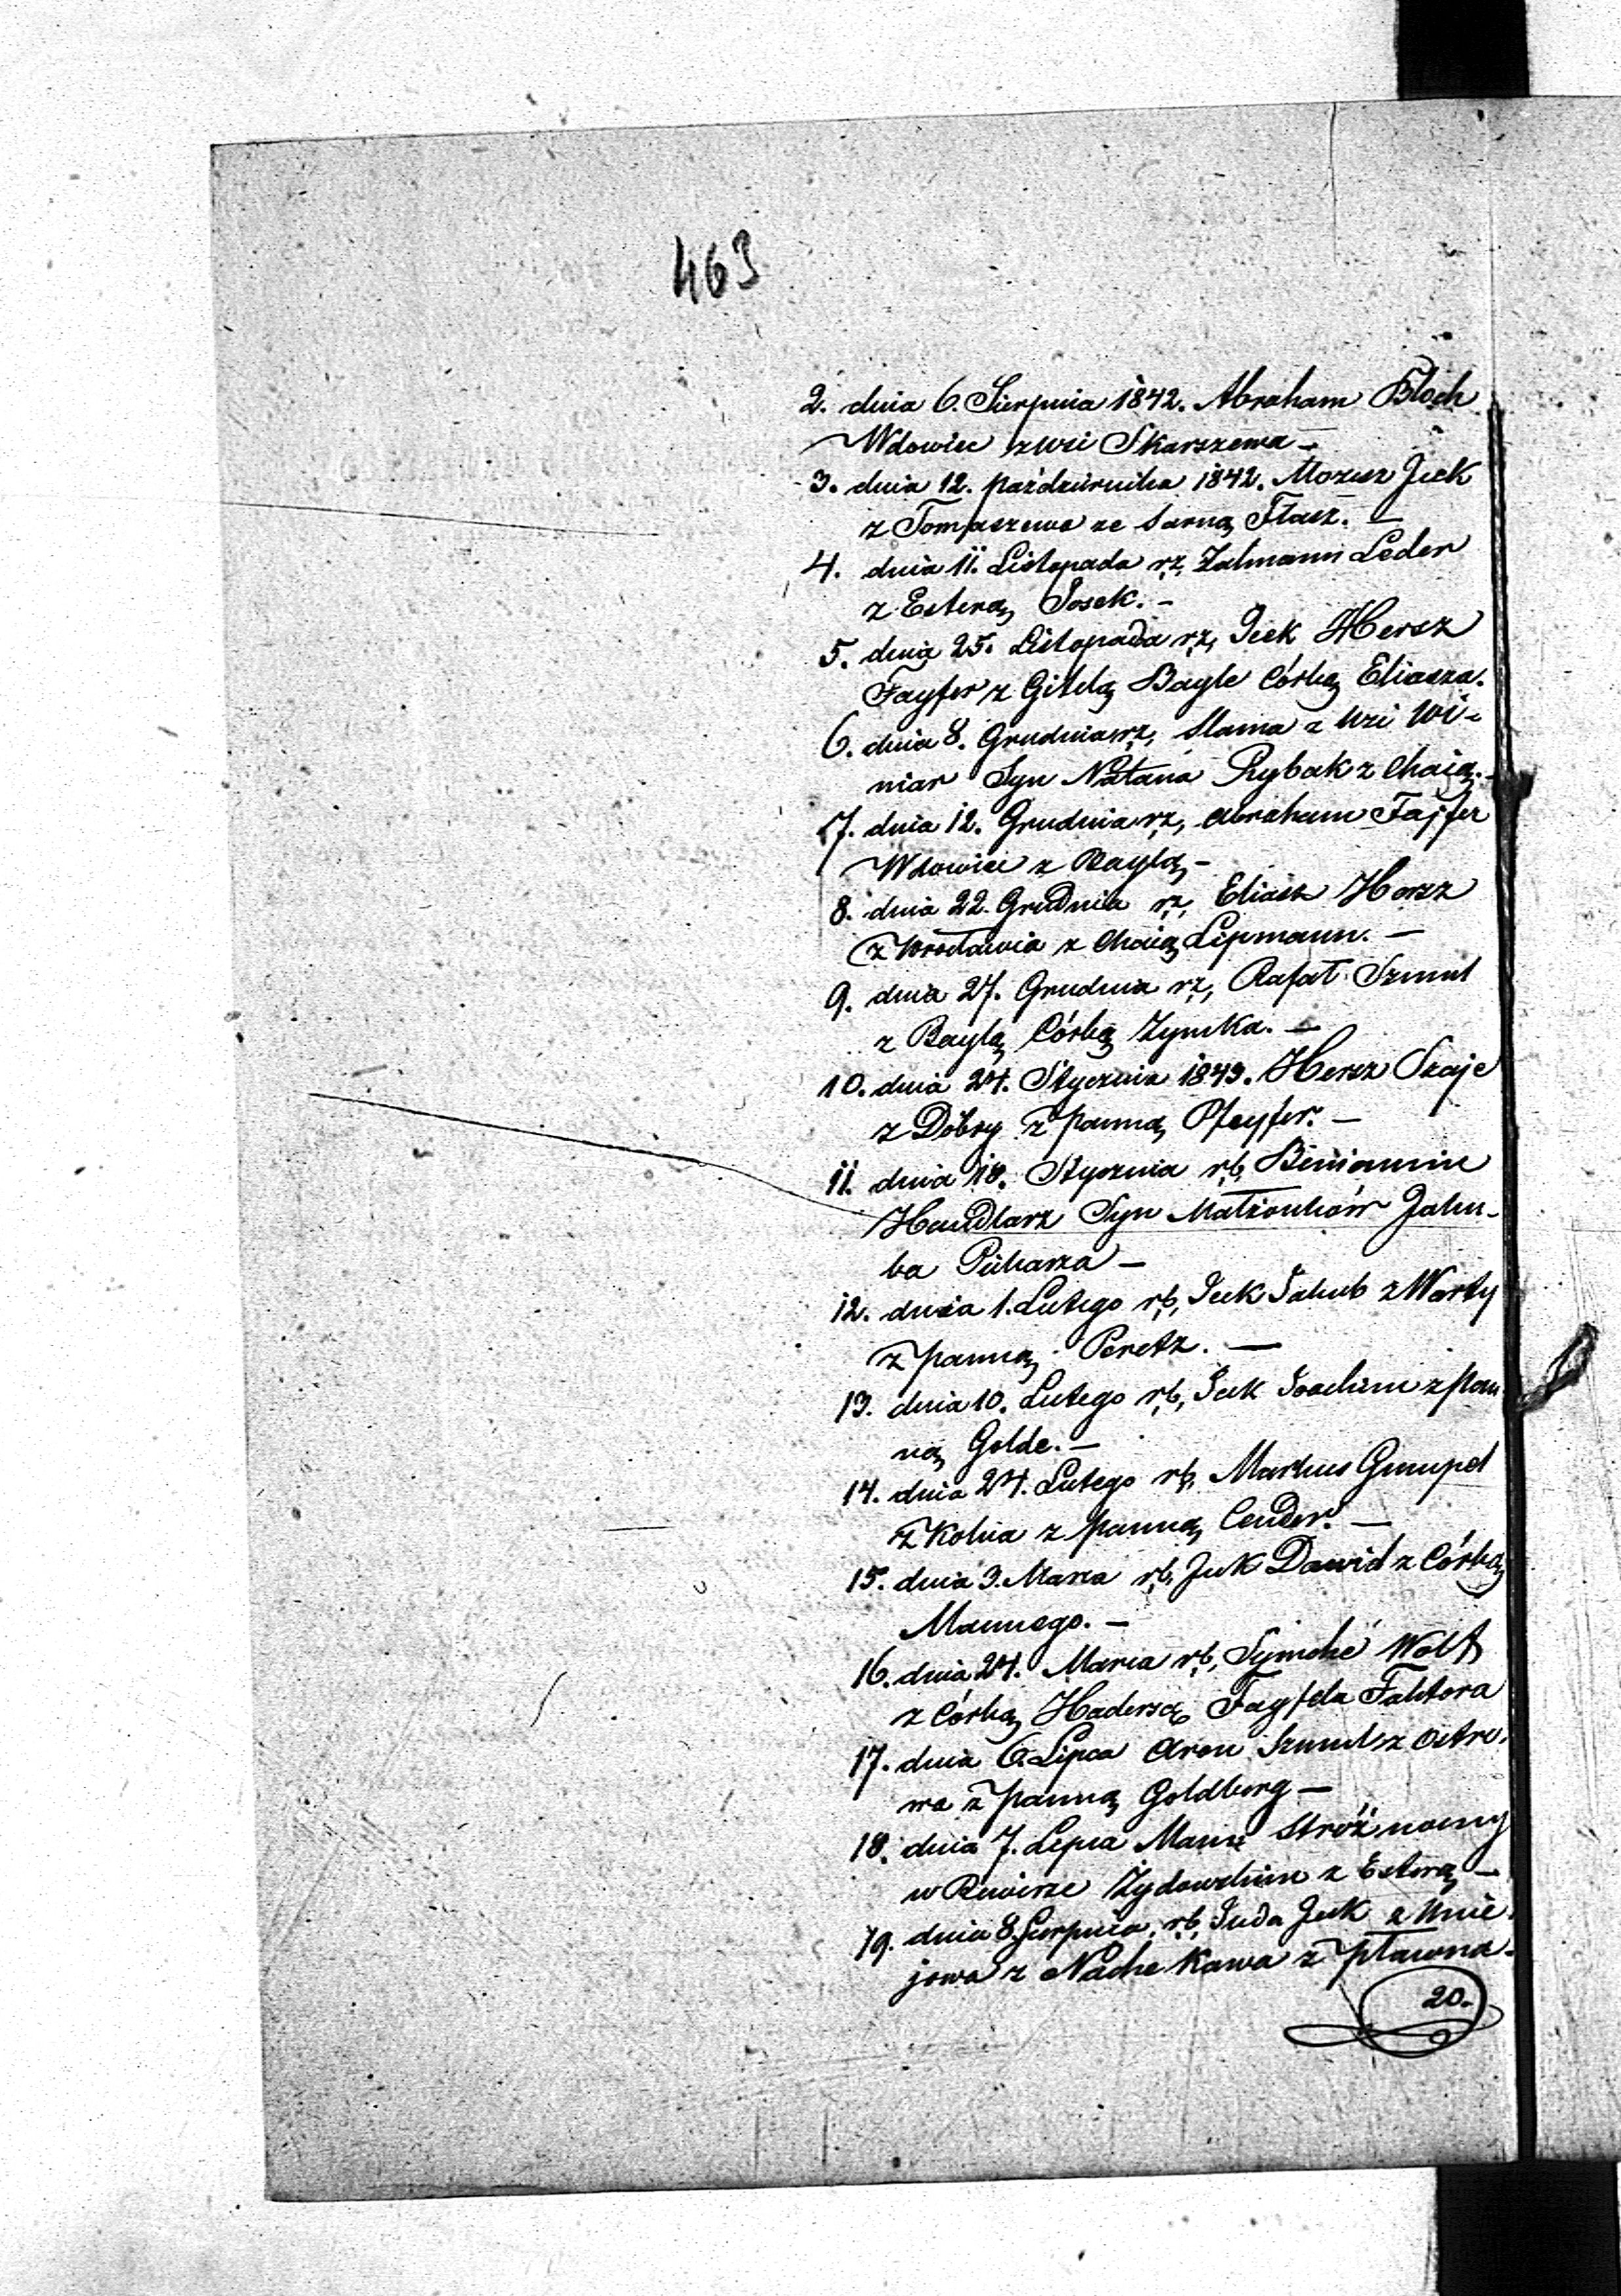 463
2. dnia 6. Sierpnia 1842. Abraham Bloch
Wdowiec z wsi Skarszewa –
3. dnia 12. październiha 1842. Mozesz Jcek
z Tomaszewa ze Sarną Flasz. –
4. dnia 11. Listopada rz, Zalmann Leder
z Esterą Josek. –
5. dnia 25. Listopada rz, Icek Hersz
Fayfer z Gitlą Bayle Córką Eliasza.
6. dnia 8. Grudnia rz, Slama z wsi Wi-
niar Syn Natana Rybak z Chaią. –
7. dnia 12. Grudnia rz, Abraham Fajfer
Wdowiec z Baylą –
8. dnia 22. Grudnia rz, Eliasz Hersz
z Wrocławia z Chaią Lipmann. –
9. dnia 27. Grudnia rz, Rafał Szmul
z Baylą Córką Zymka. –
10. dnia 24. Stycznia 1843. Hersz Szaje
z Dobry z panną Pfeyfer. –
11. dnia 18. Stycznia rb, Biniamin
Handlarz Syn Małżonków Jaku-
ba Piekarza –
12. dnia 1. Lutego rb, Icek Jakub z Warty
z panną Peretz. –
13. dnia 10. Lutego rb, Icek Joachim z pan-
ną Golde. –
14. dnia 24. Lutego rb, Markus Gumpel
z Koła z panną Cender. –
15. dnia 3. Marca rb, Jcek Dawid z Córką
Mannego. –
16. dnia 24. Marca rb, Symche Wolf
z Córką Hadersą Fayfela Faktora
17. dnia 6. Lipca Aron Szmul z Ostro-
wa z panną Goldberg –
18. dnia 7. Lipca Mann Stróż nocny
w Rewirze Żydowskim z Esterą –
19. dnia 8. Sierpnia rb, Juda Jcek z Unie-
jowa z Nache Kawa z Pławna –
20.